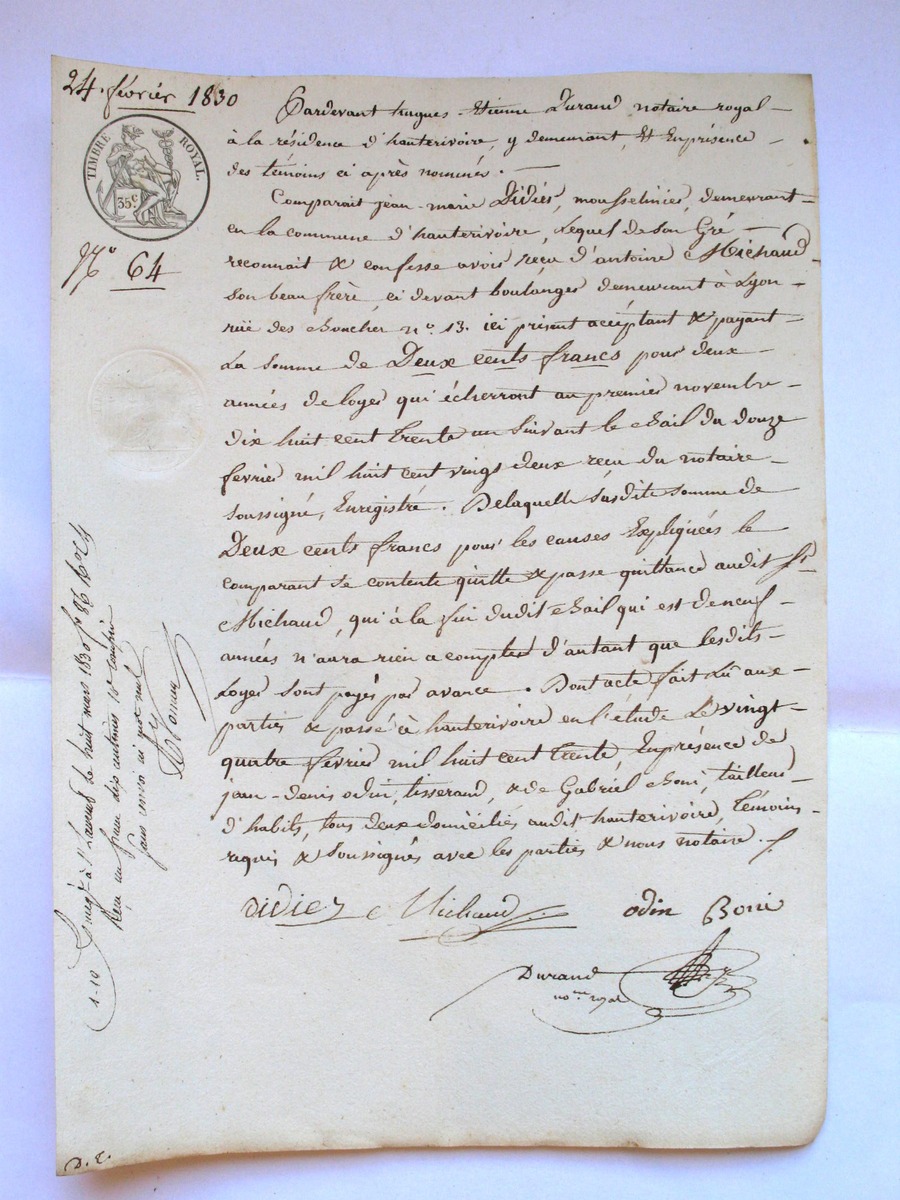 24. février 1830
TIMBRE ROYAL.
35c
N.° 64
Pardevant hugues-Etienne Durand notaire royal
à la résidence d'hauterivoire, y demeurant, Et Enprésence
des témoins ci après nommés.
Comparait jean-marie Didier, mousselinier, demeurant
en la commune d'hauterivoire, Lequel de Son Gré
reconnait & confesse avoir reçu d'antoine Michaud
Son beaufrère, ci devant boulanger demeurant à Lyon
rüe des Boucher n.° 13. ici présent acceptant & payant
La Somme de Deux cents francs pour deux
années de loyer qui écherront au premier novembre
dix huit cent trente un Suivant le Bail du douze
fevrier mil huit cent vingt deux reçu du notaire
Soussigné, Enregistré. Delaquelle Susdite Somme de
Deux cents francs pour les causes Expliquées le
comparant Se contente quitte & passe quittance audit Sr
Michaud, qui à la fin dudit Bail qui est de neuf
années n'aura rien a compter d'autant que lesdits
Loyer Sont payés par avance. Dont acte fait Lû aux
parties & passé à hauterivoire en l'etude Le vingt
quatre février mil huit cent trente, Enprésence de
jean-denis odin, tisserand, & de Gabriel Boni, tailleur
d'habits, tous deux domiciliés audit hauterivoire, Témoins
requis & Soussignés avec les parties & nous notaire.
Didier Michaud odin Boni
Durand
no.re royal
Enregé à St Laurent Le huit mars 1830 fo 86 Ro C4
Reçu un franc dix centimes 10e compris
1-10
D. E.